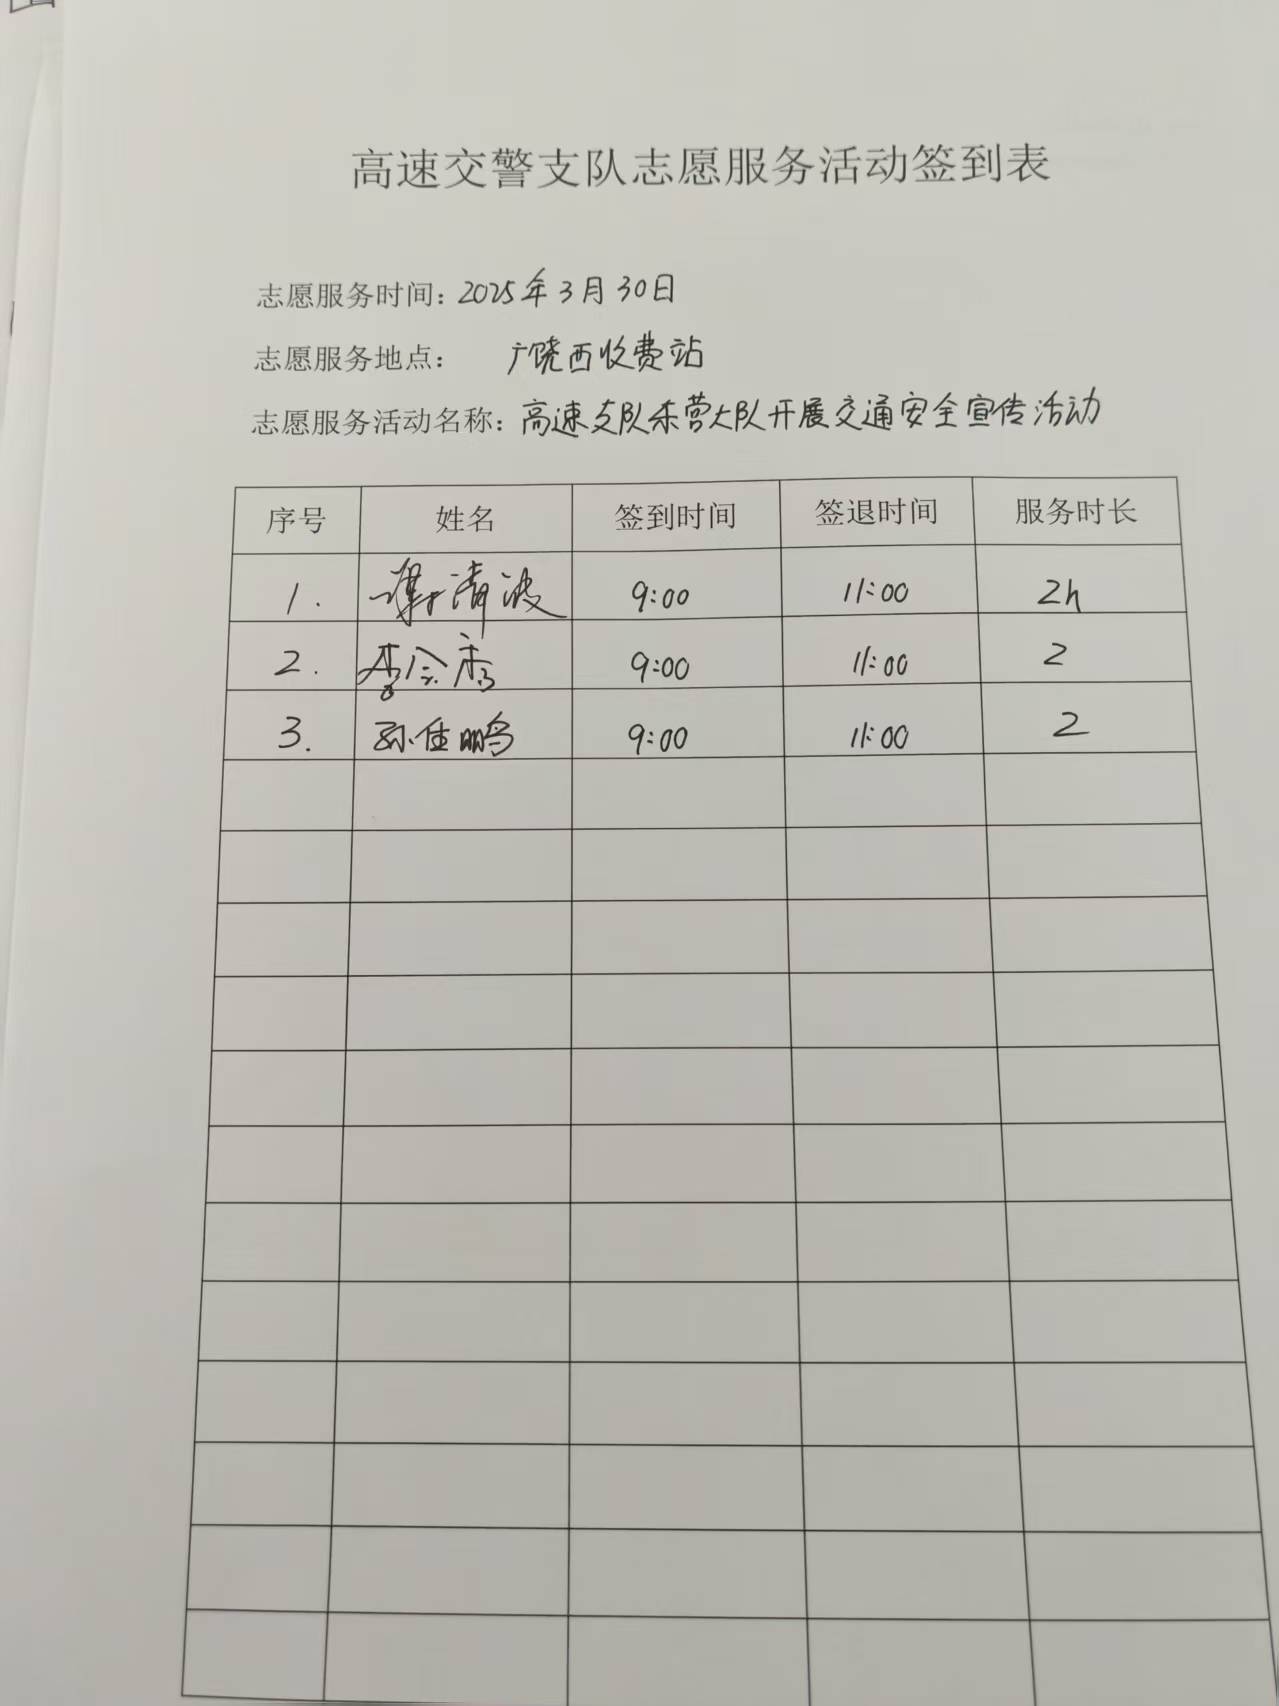 高速交警支队志愿服务活动签到表
志愿服务时间：2025年3月30日
志愿服务地点： 广饶西收费站
志愿服务活动名称：高速支队东营大队开展交通安全宣传活动
序号 姓名 签到时间 签退时间 服务时长
1. 清波 9:00 11:00 2h
2. 9:00 11:00 2
3. 孙佳鹏 9:00 11:00 2